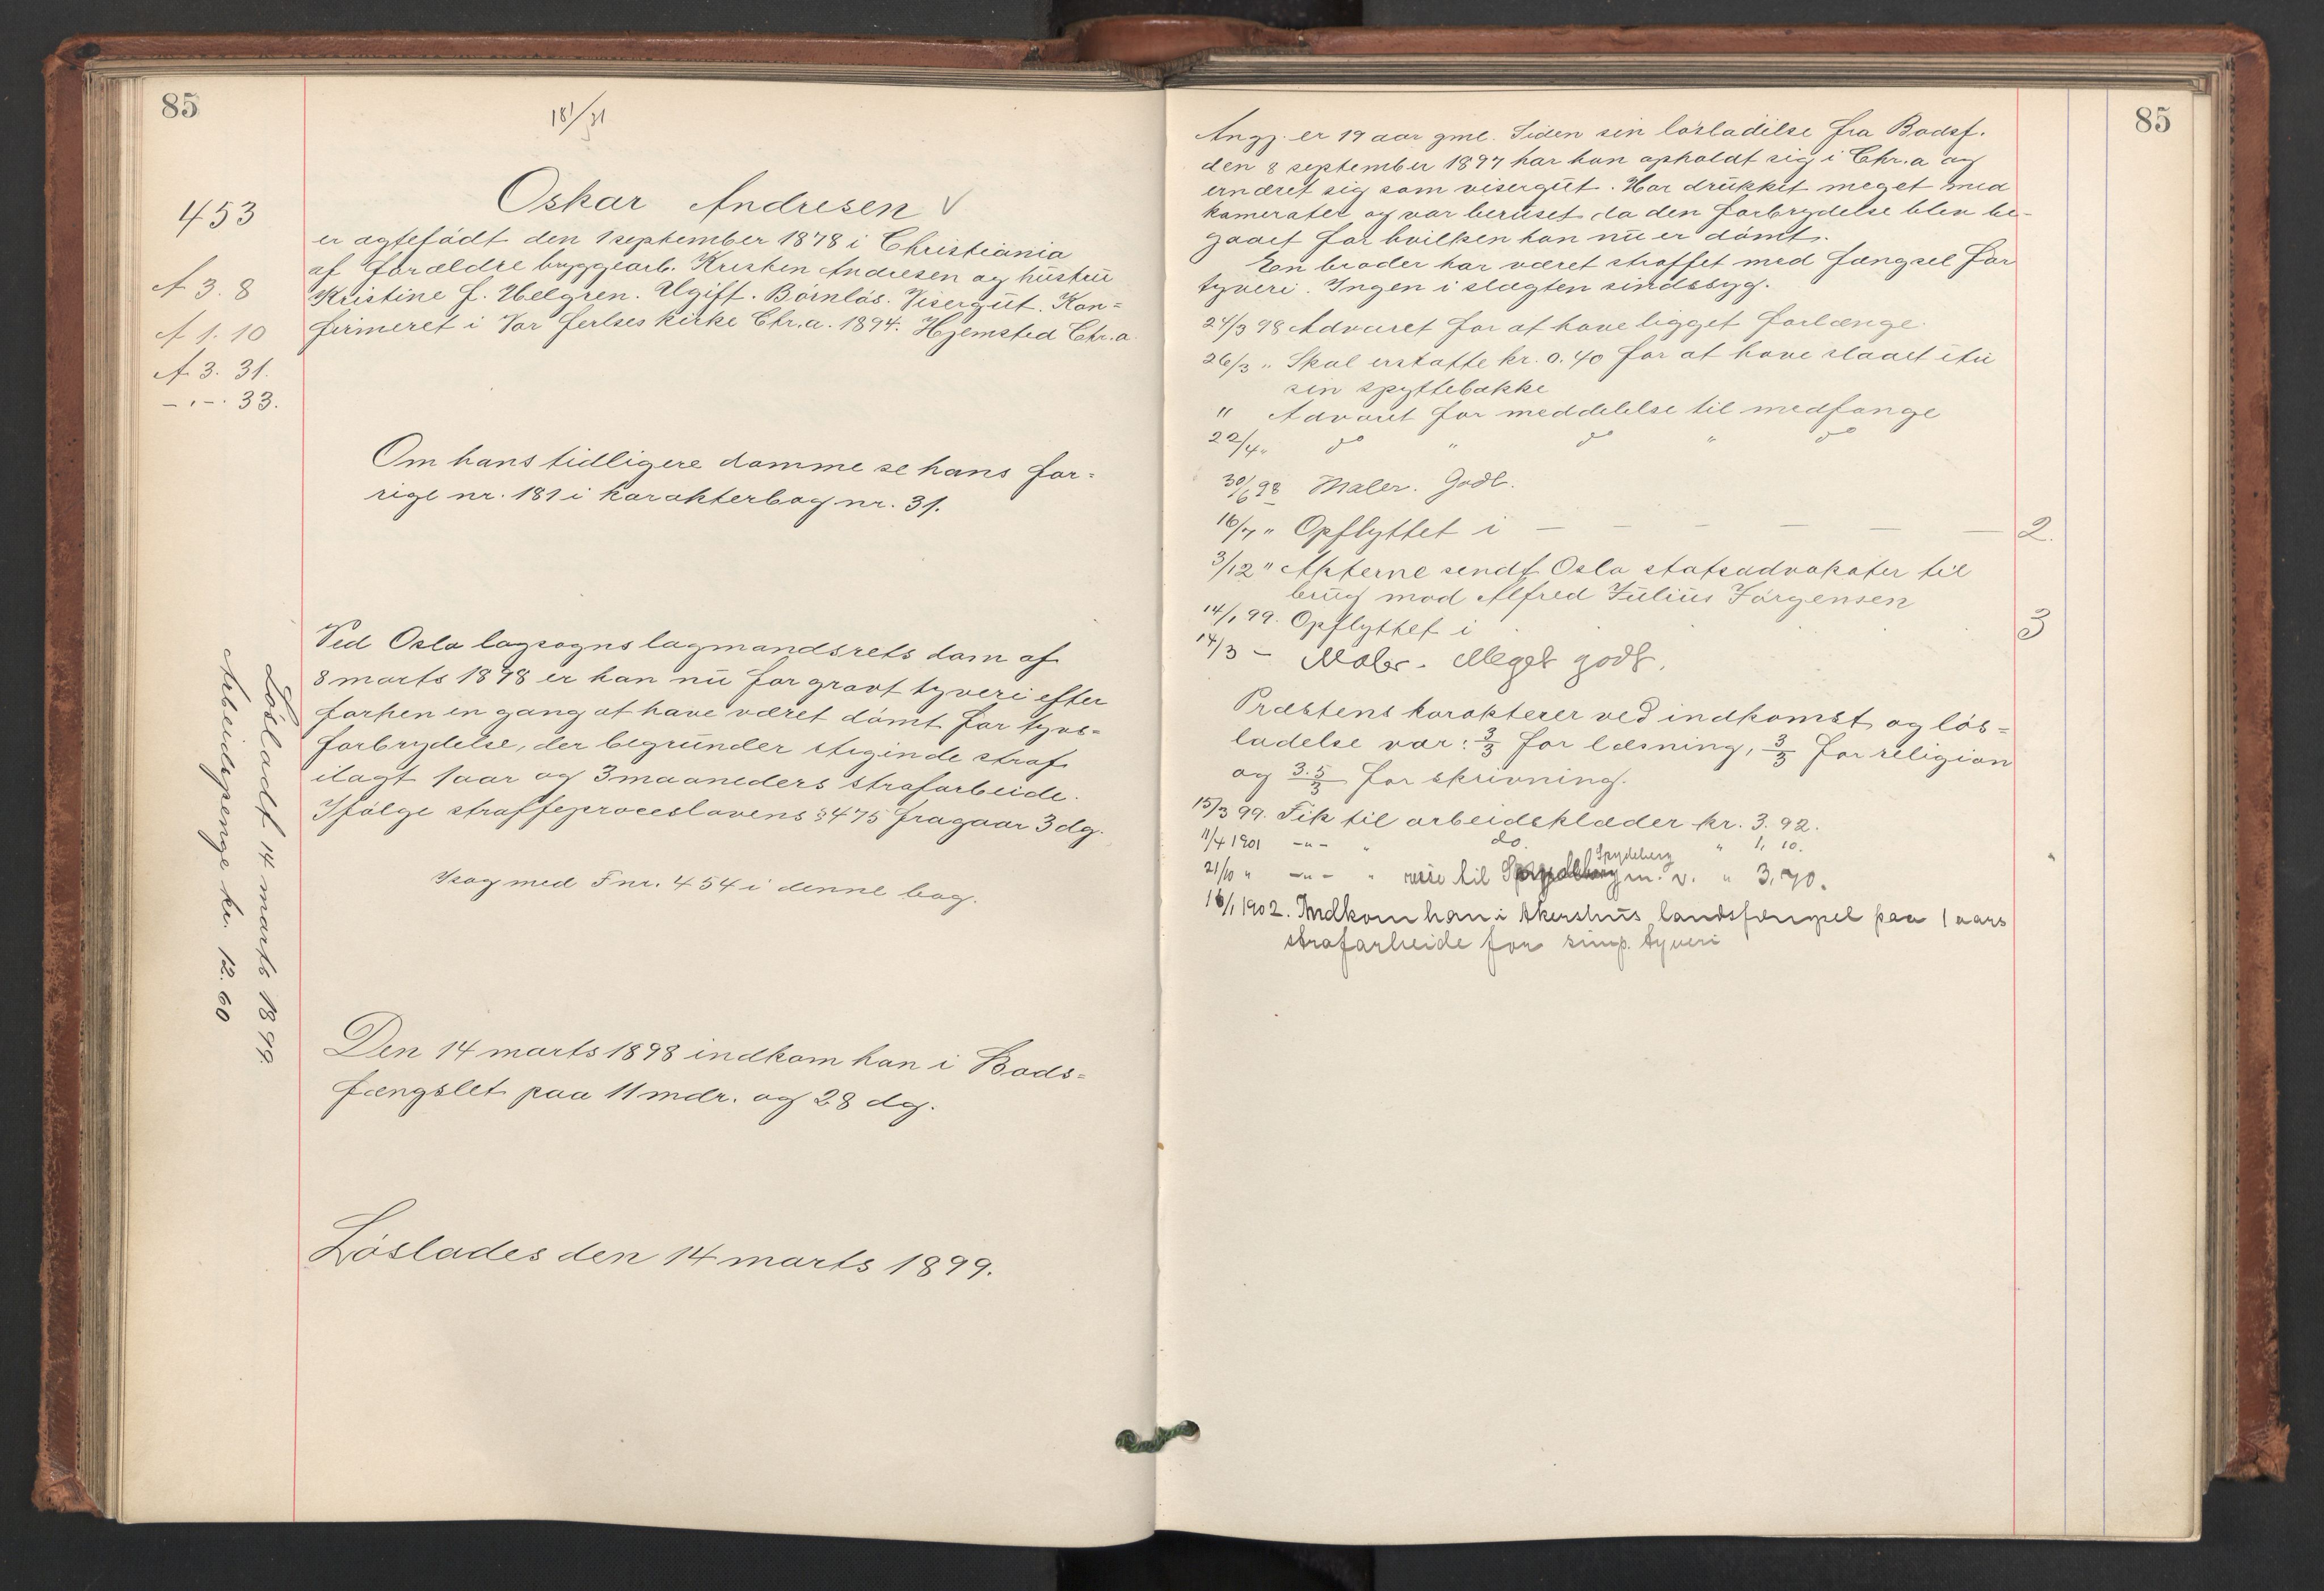 85
181/31
453
Oskar Andresen V
er ægtefødt den 1 september 1878 i Christiania
af forældre bryggearb. Kristen Andresen og hustru
Kristine f. Helgren. Ugift. Børnløs. Visergut. Kon=
firmeret i Vor frelsers kirke Chr.a. 1894. Hjemsted Chr.a.
A 3. 8
A 1. 10
A. 3. 31.
– " –. 33.
Om hans tidligere domme se hans for=
rige nr. 181 i karakterbog nr. 31.
Ved Oslo lagsogns lagmandsrets dom af
8 marts 1898 er han nu for grovt tyveri efter
forhen en gang at have været dømt for tyvs=
forbrydelse, der begrunder stigende straf
ilagt 1 aar og 3 maaneders strafarbeide.
Ifølge straffeproceslovens § 475 fragaar 3 dg.
Isag med Fnr. 454 i denne bog.
Løsladt 14 marts 1899.
Arbeidspenge kr. 12.60
Den 14 marts 1898 indkom han i Bods=
fængslet paa 11 mdr. og 28 dg.
Løslades den 14 marts 1899.
85
Angj. er 19 aar gml. Siden sin løsladelse fra Bodsf.
den 8 september 1897 har han opholdt sig i Chr.a og
ernæret sig som visergut. Har drukket meget med
kamerater og var beruset da den forbrydelse blev be-
gaaet for hvilken han nu er dømt.
En broder har været straffet med fængsel for
tyveri. Ingen i slægten sindssyg.
24/3 98 Advaret for at have ligget forlænge.
26/3 " Skal erstatte kr. 0.40 for at have slaaet itu
sin spyttebakke
" Advaret for meddelelse til medfange
22/4 " do " do " do
30/6 98 Maler. Godt.
16/7 " Opflyttet i — — — — — — 2.
3/12 " Akterne sendt Oslo statsadvokater til
brug mod Alfred Julius Jørgensen
14/1 99. Opflyttet i 3
14/3 – Maler. Meget godt.
Præstens karakterer ved indkomst og løs=
ladelse var: 3/3 for læsning, 3/3 for religion
og 3.5/3 for skrivning.
15/3 99. Fik til arbeidsklæder kr. 3. 92.
11/4 1901 –"– " do. " 1, 10.
Spydeberg
21/10 " –"– " reise til m. v. " 3,70.
16/1 1902. Indkom han i Akershus landsfængsel paa 1 aars
strafarbeide for simp. tyveri